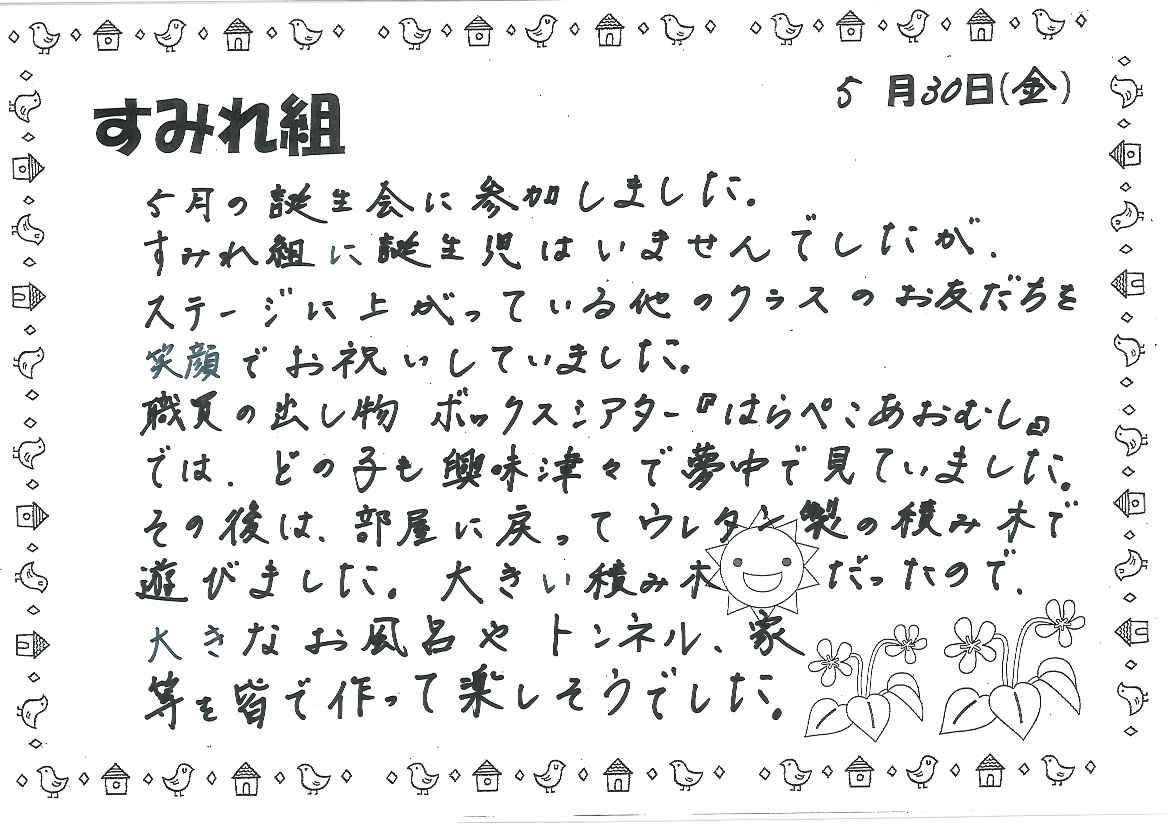 5月30日(金)
すみれ組
5月の誕生会に参加しました。
すみれ組に誕生児はいませんでしたが、
ステージに上がっている他のクラスのお友だちを
笑顔でお祝いしていました。
職員の出し物 ボックスシアター『はらぺこあおむし』
では、どの子も興味津々で夢中で見ていました。
その後は、部屋に戻ってウレタン製の積み木で
遊びました。大きい積み木だったので、
大きなお風呂やトンネル、家
等を皆で作って楽しそうでした。